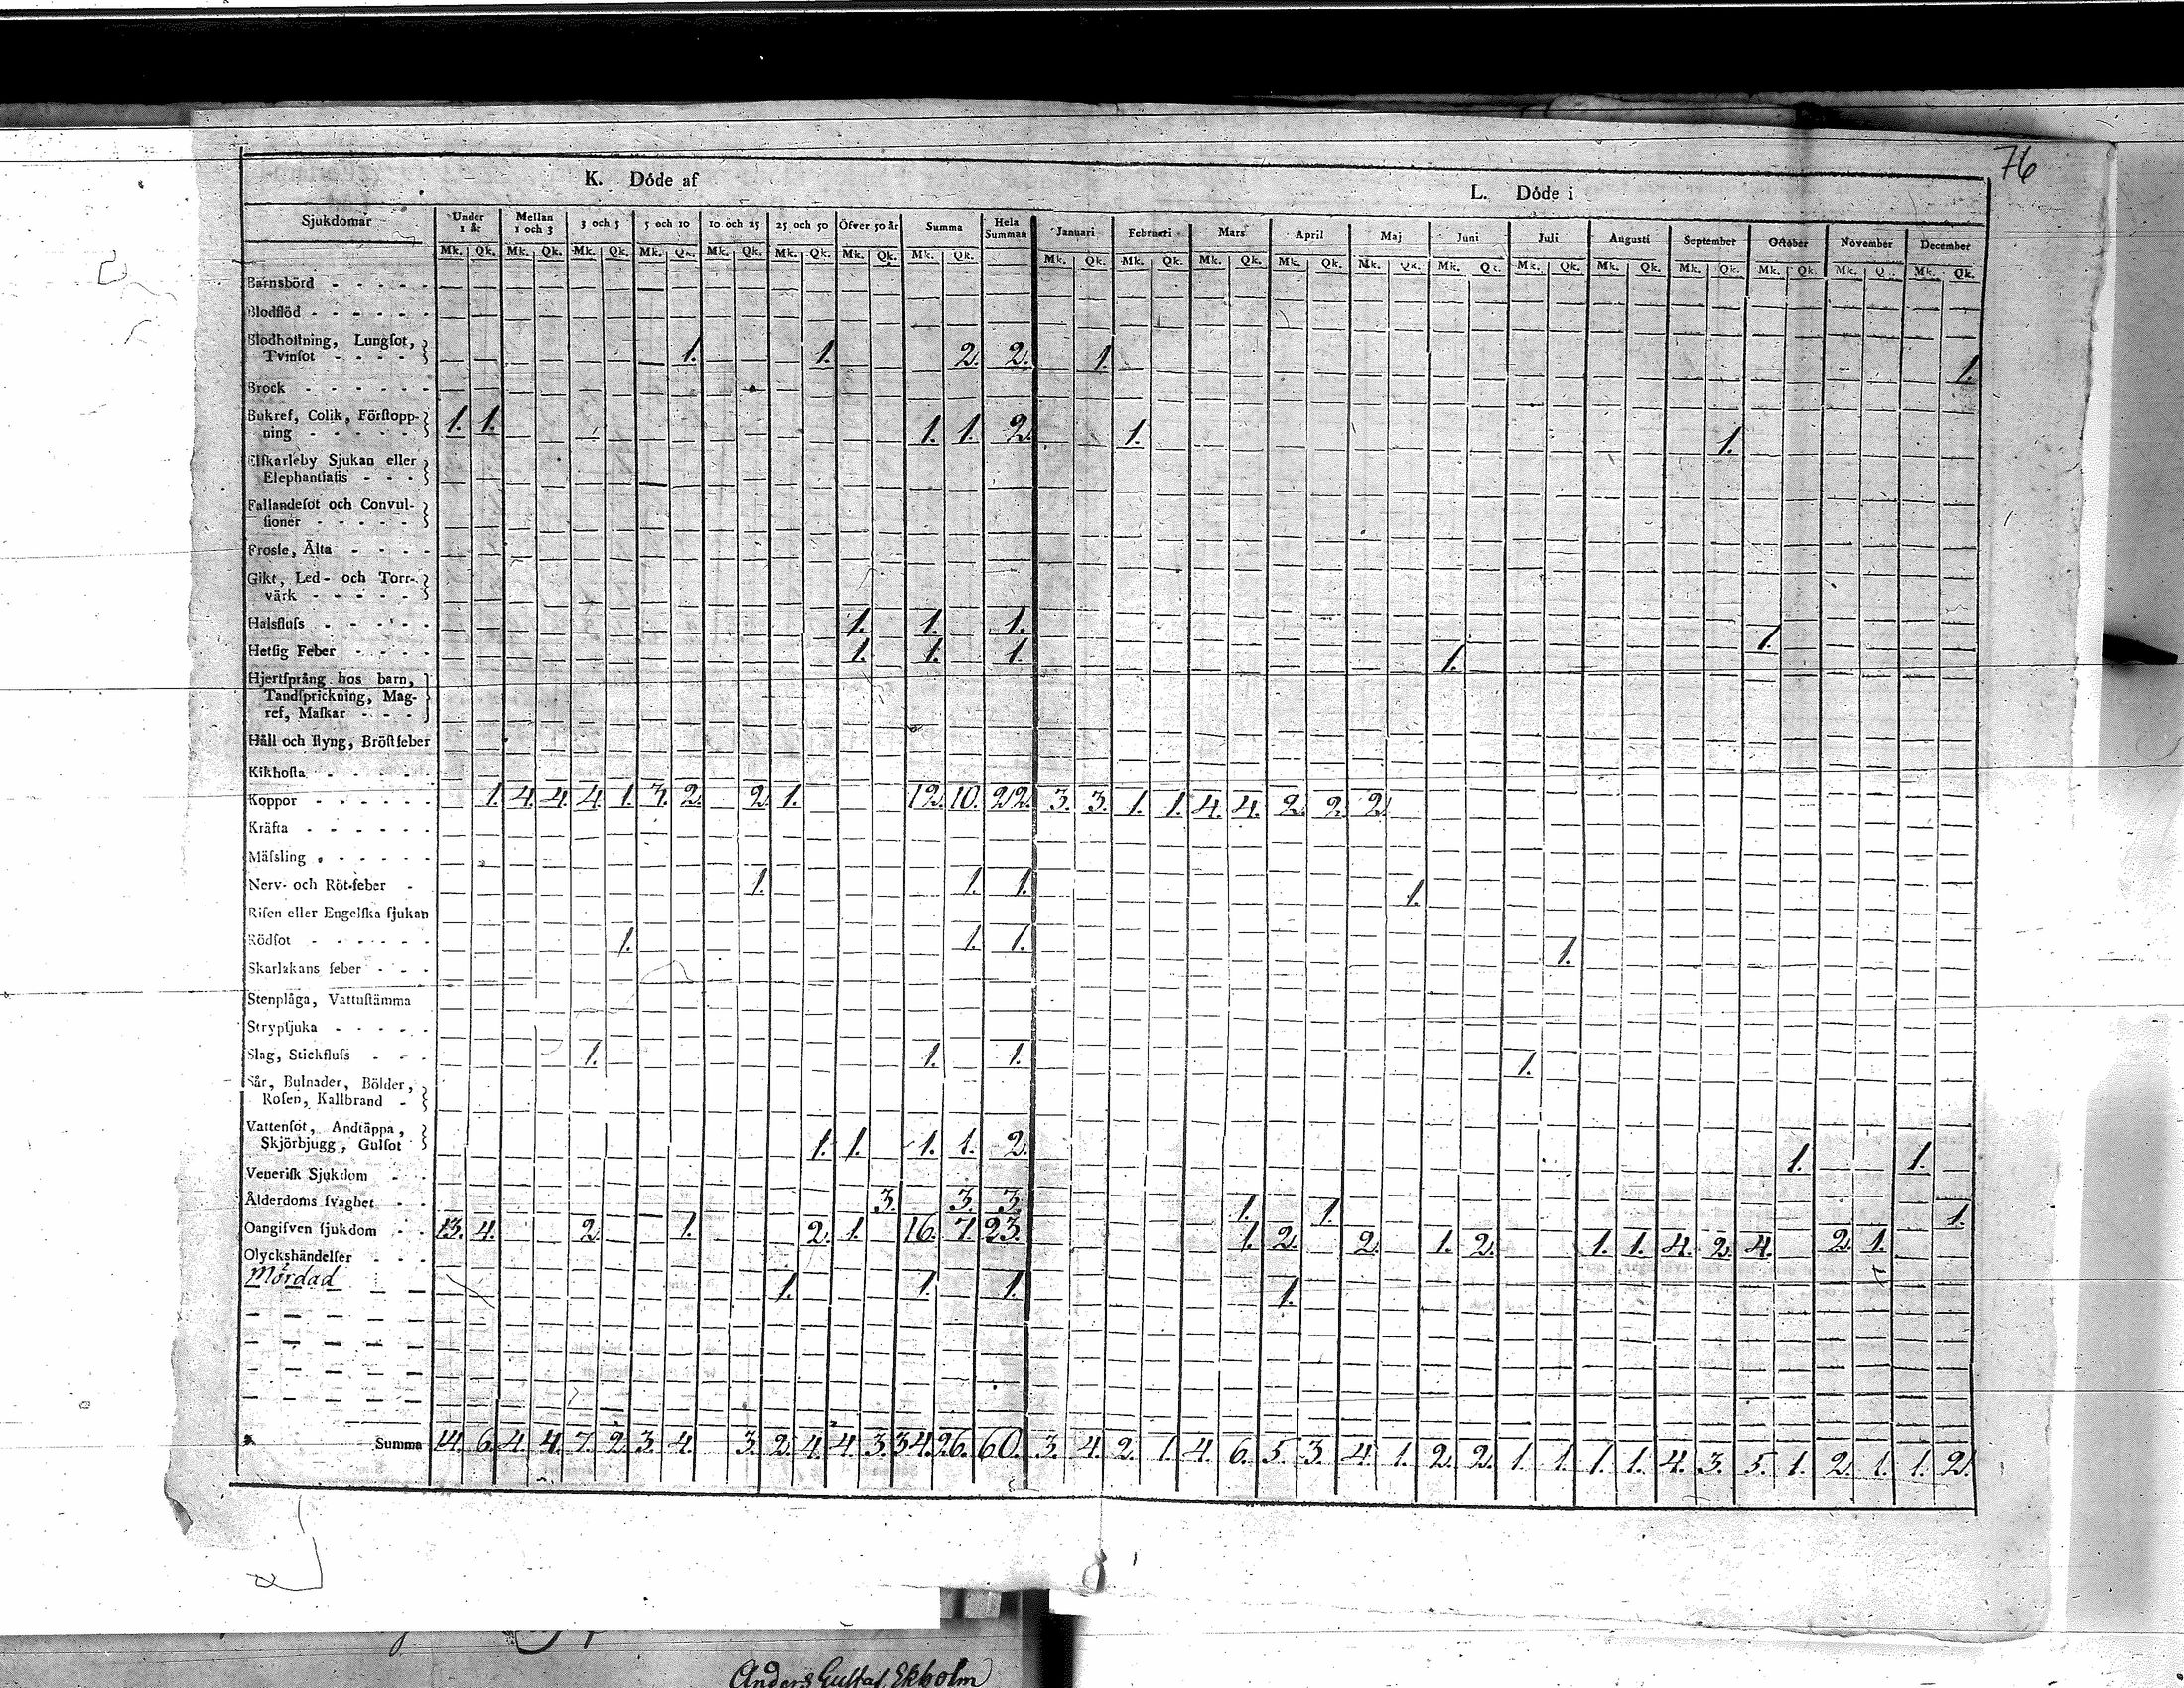 76
K. Döde af
L. Döde i
Sjukdomar Under 1 år Mellan 1 och 3 3 och 5 5 och 10 10 och 25 25 och 50 Öfver 50 år Summa Hela Summan Januari Februari Mars April Maj Juni Juli Augusti September October November December
Mk. Qk. Mk. Qk. Mk. Qk. Mk. Qk. Mk. Qk. Mk. Qk. Mk. Qk. Mk. Qk. Mk. Qk. Mk. Qk. Mk. Qk. Mk. Qk. Mk. Qk. Mk. Qk. Mk. Qk. Mk. Qk. Mk. Qk. Mk. Qk. Mk. Q. Mk. Qk.
Barnsbörd - - - - -
Blodflöd - - - - - -
Blodhostning, Lungſot,
Tvinſot - - - - 1. 1. 2. 2. 1. 1.
Brock - - - - - -
Bukref, Colik, Förſtopp-
ning - - - - - 1. 1. 1. 1. 2. 1. 1.
Elfkarleby Sjukan eller
Elephantiaſis - - -
Fallandeſot och Convul-
ſioner - - - - -
Frosſe, Älta - - - -
Gikt, Led- och Torr-
värk - - - - -
Halsfluſs - - - - - 1. 1. 1. 1.
Hetſig Feber - - - - 1. 1. 1. 1.
Hjertſprång hos barn,
Tandſprickning, Mag-
ref, Maſkar - - -
Håll och ſtyng, Bröſtfeber
Kikhoſta - - - - -
Koppor - - - - - - 1. 4. 4. 4. 1. 3. 2. 2. 1. 12. 10. 22. 3. 3. 1. 1. 4. 4. 2. 2. 2.
Kräfta - - - - - -
Mäſsling - - - - - -
Nerv- och Röt-feber - 1. 1. 1. 1.
Riſen eller Engelſka ſjukan
Rödſot - - - - - - 1. 1. 1. 1.
Skarlakans feber - - -
Stenplåga, Vattuſtämma
Strypſjuka - - - - -
Slag, Stickfluſs - - - 1. 1. 1. 1.
Sår, Bulnader, Bölder,
Roſen, Kallbrand -
Vattenſot, Andtäppa,
Skjörbjugg, Gulſot 1. 1. 1. 1. 2. 1. 1.
Veneriſk Sjukdom - -
Ålderdoms ſvaghet - - 3. 3. 3. 1. 1. 1.
Oangifven ſjukdom - - 13. 4. 2. 1. 2. 1. 16. 7. 23. 1. 2. 2. 1. 2. 1. 1. 4. 2. 4. 2. 1.
Olyckshändelſer - - -
Mördad 1. 1. 1. 1.
Summa 14. 6. 4. 4. 7. 2. 3. 4. 3. 2. 4. 4. 3. 34. 26. 60. 3. 4. 2. 1. 4. 6. 5. 3. 4. 1. 2. 2. 1. 1. 1. 1. 4. 3. 5. 1. 2. 1. 1. 2.
Anders Gustaf Ekholm